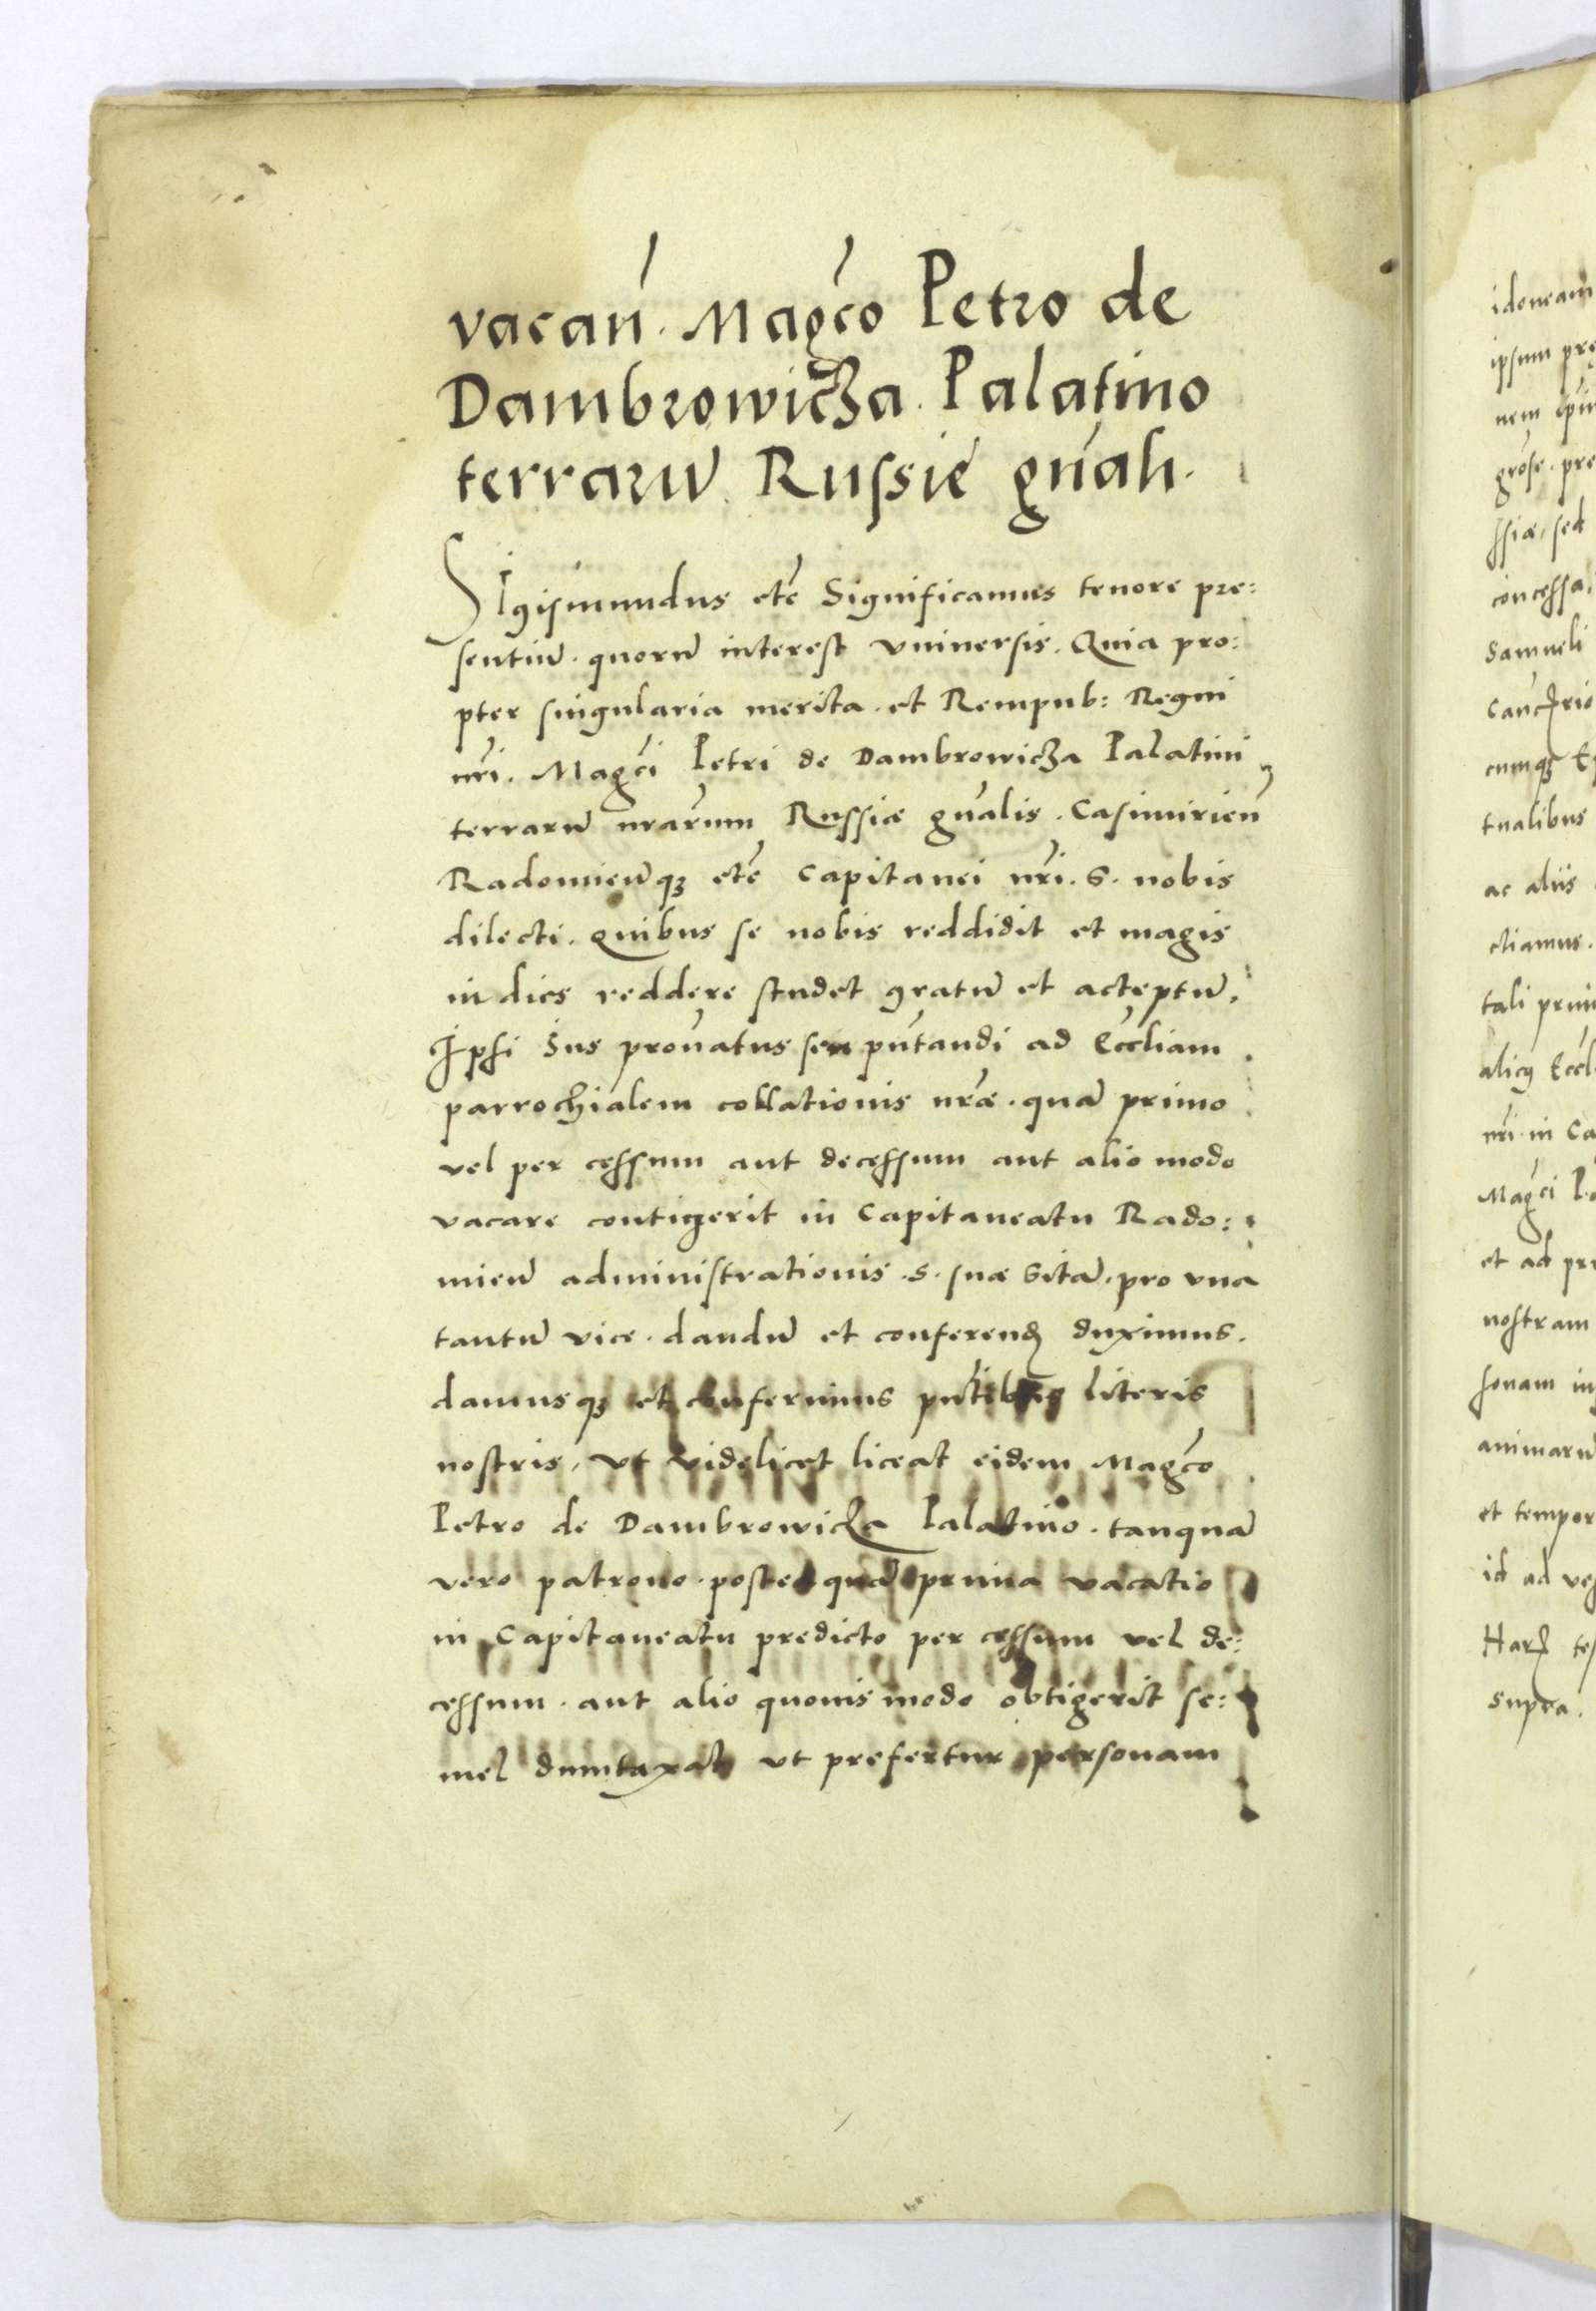 vacan̄. Magc̄o Petro de
Dambrowicza. Palatino
terrarū. Russie gn̄ali.
SIgismundus etc̄ Significamus tenore pre:
sentiū. quorū interest vniuersis. Quia pro:
pter singularia merita. et Rempub: Regni
nr̄i. Magc̄i Petri de Dambrowicza Palatini
terrarū nrārum Russiæ gn̄alis. Casimirien̄
Radomien̄q3 etc̄ Capitanei nr̄i. S. nobis
dilecti. quibus se nobis reddidit et magis
in dies reddere studet gratū et acceptū.
Ipsi Ius pronatus seu pn̄tandi ad Ecc̄liam
parrochialem collationis nrǣ. quā primo
vel per cessum aut decessum aut alio modo
vacare contigerit in Capitaneatu Rado:
mien̄ administrationis .S. suæ sitā. pro vna
tantū vice. dandū et conferend̄ duximus.
damusq3 et conferimus pn̄tibus literis
nostris, vt videlicet liceat eidem Magc̄o
Petro de Dambrowicza Palatino. tanquā
vero patrono. posteaquā prima vacatio
in Capitaneatu predicto per cessum vel de:
cessum. aut alio quouis modo obtigerit se:
mel dumtaxat vt prefertur personam
idoneam
ipsum pre
nem
grose. pre
ssiæ, sed
concessa,
Samueli
cumq3
tualibus
ac aliis
ctiamus.
tali
alicq
nr̄i. in Ca
Magc̄i
et ad
nostram
sonam
animarū
et tempor
id ad
Supra.